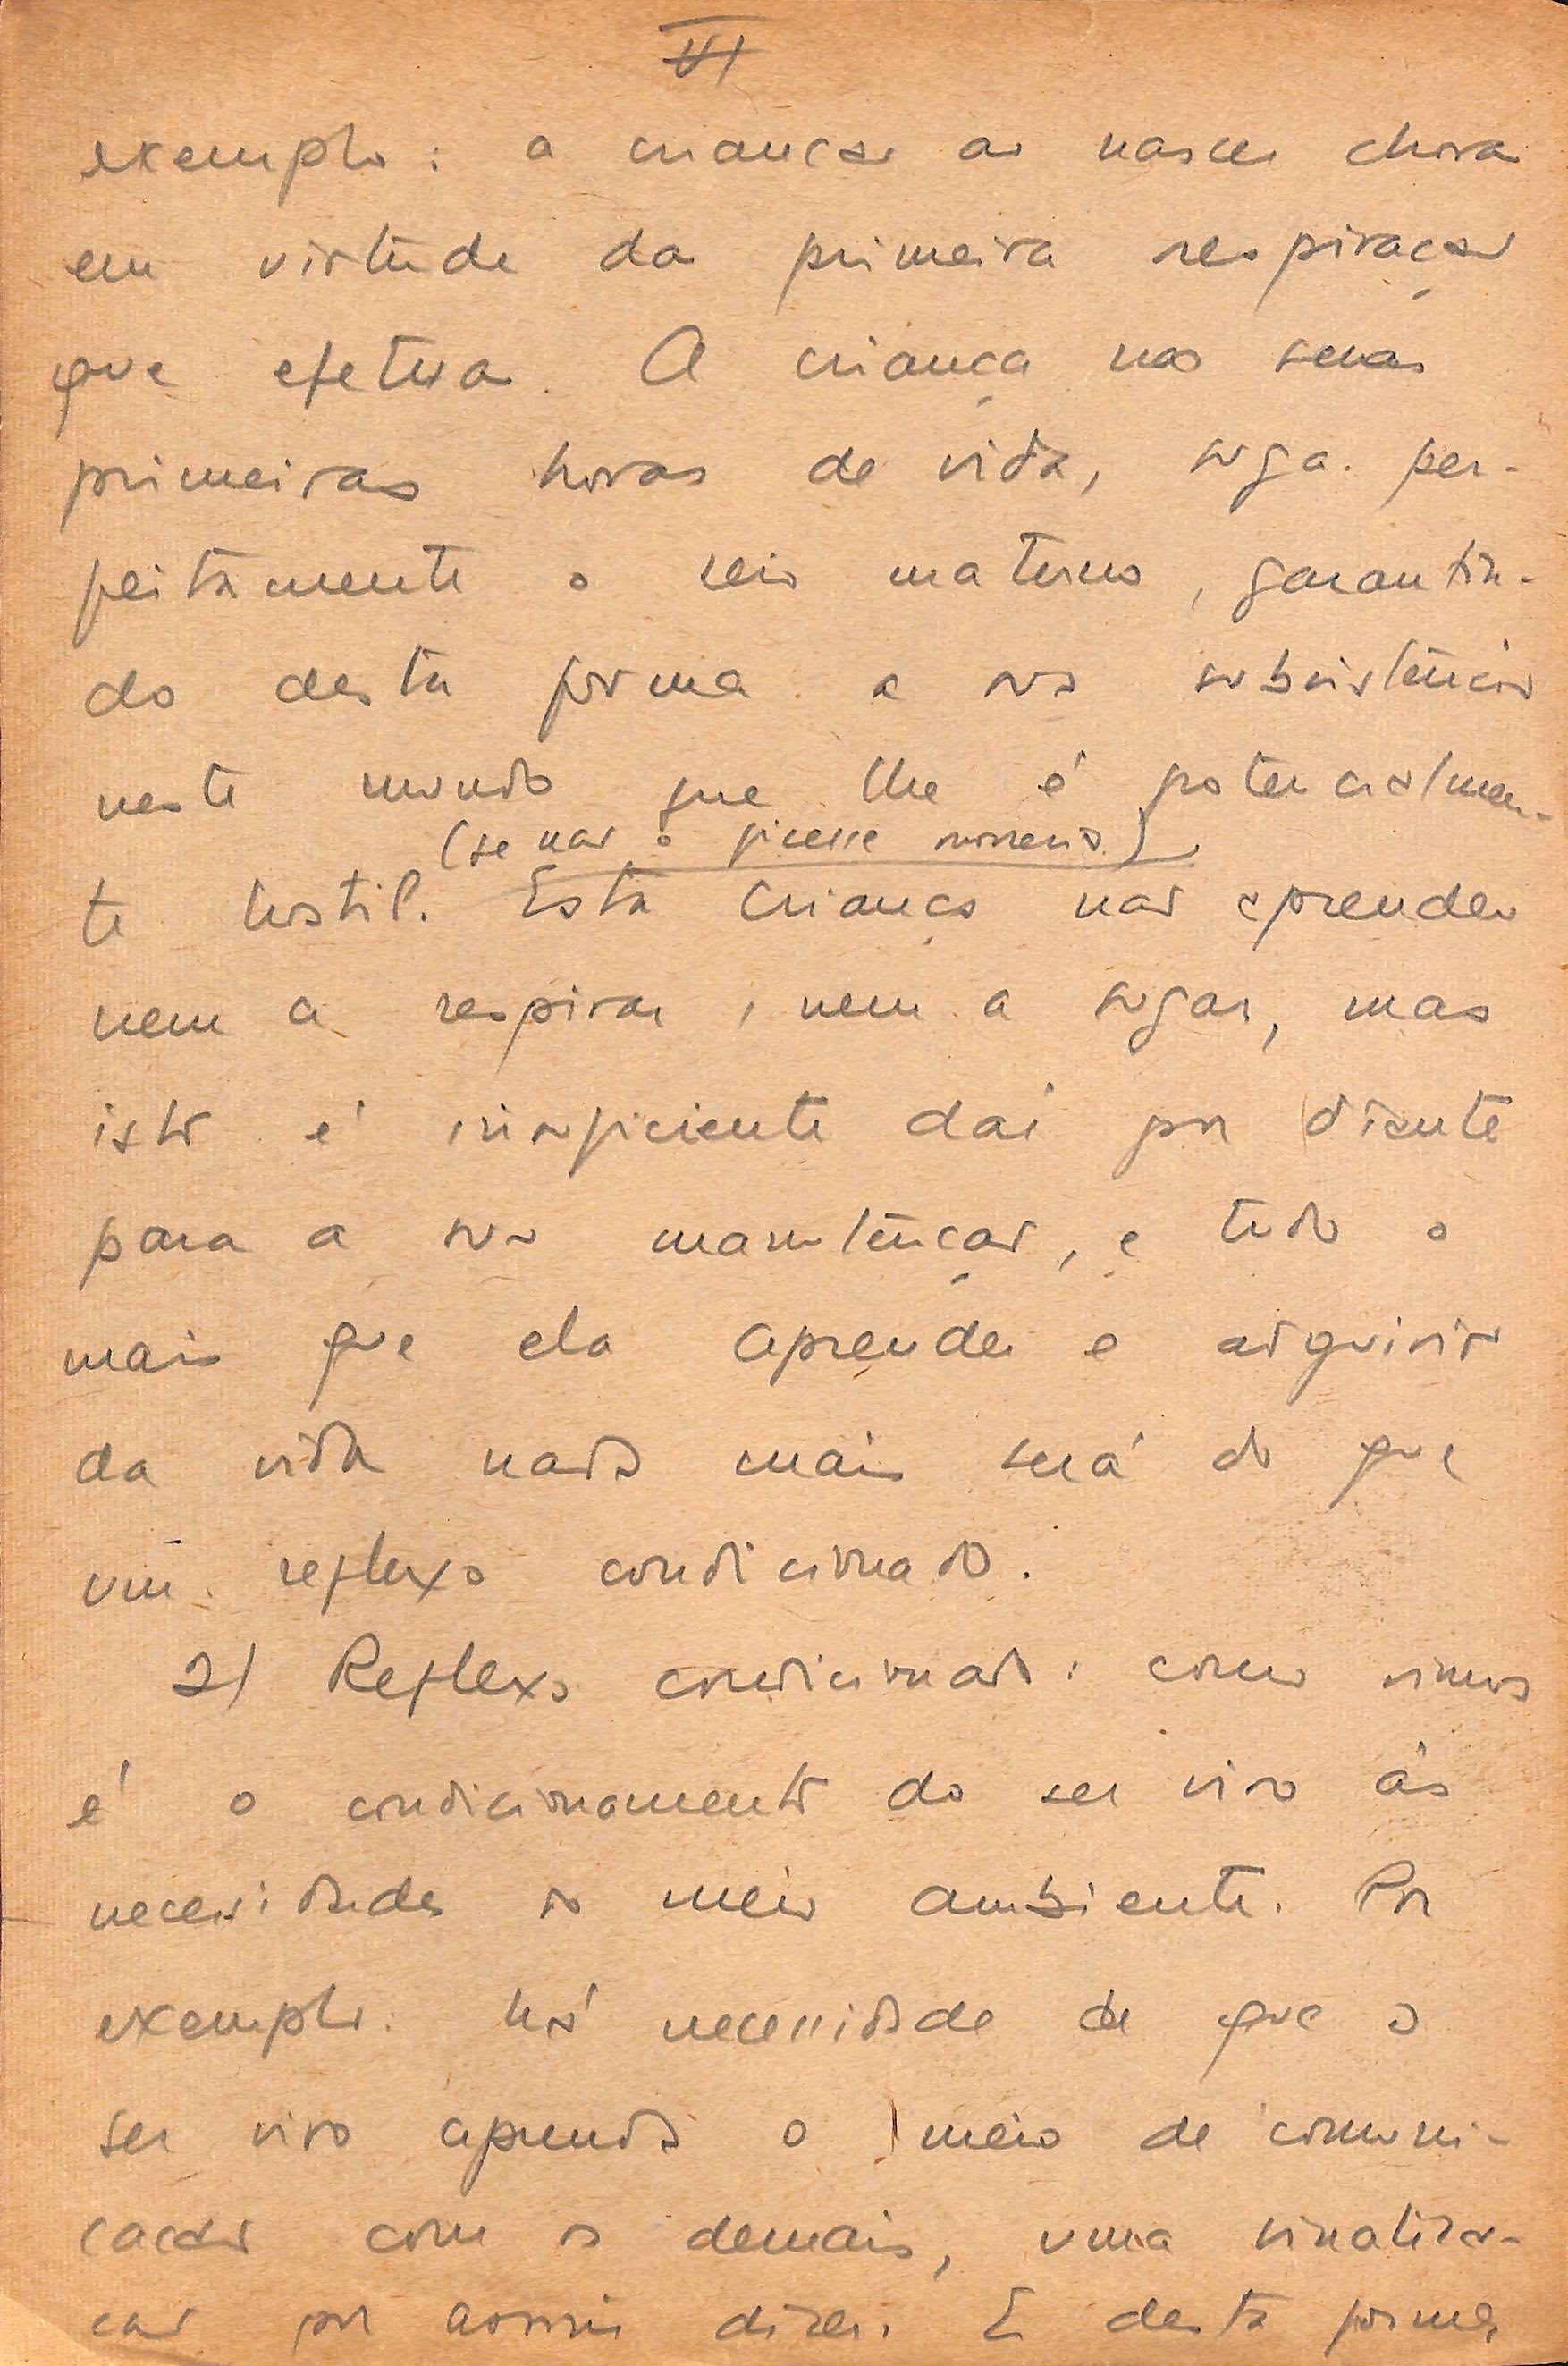 VI
exemplo: a criança ao nascer chora
em virtude da primeira respiração
que efetua. A criança nas suas
primeiras horas de vida, suga per-
feitamente o seio materno, garantin-
do desta forma a sua subsistência
neste mundo que lhe é potencialmen-
(se não o fizesse morreria)
te hostil. Esta criança não aprendeu
nem a respirar, nem a sugar, mas
isto é insuficiente daí por diante
para a sua manutenção, e tudo o
mais que ela aprender e adquirir
da vida nada mais será do que
um reflexo condicionado.
2) Reflexo condicionado: como vimos
é o condicionamento do ser vivo às
necessidades do meio ambiente. Por
exemplo: há necessidade de que o
ser vivo aprenda o meio de comuni-
cação com os demais, uma sinaliza-
ção por assim dizer. E desta forma,